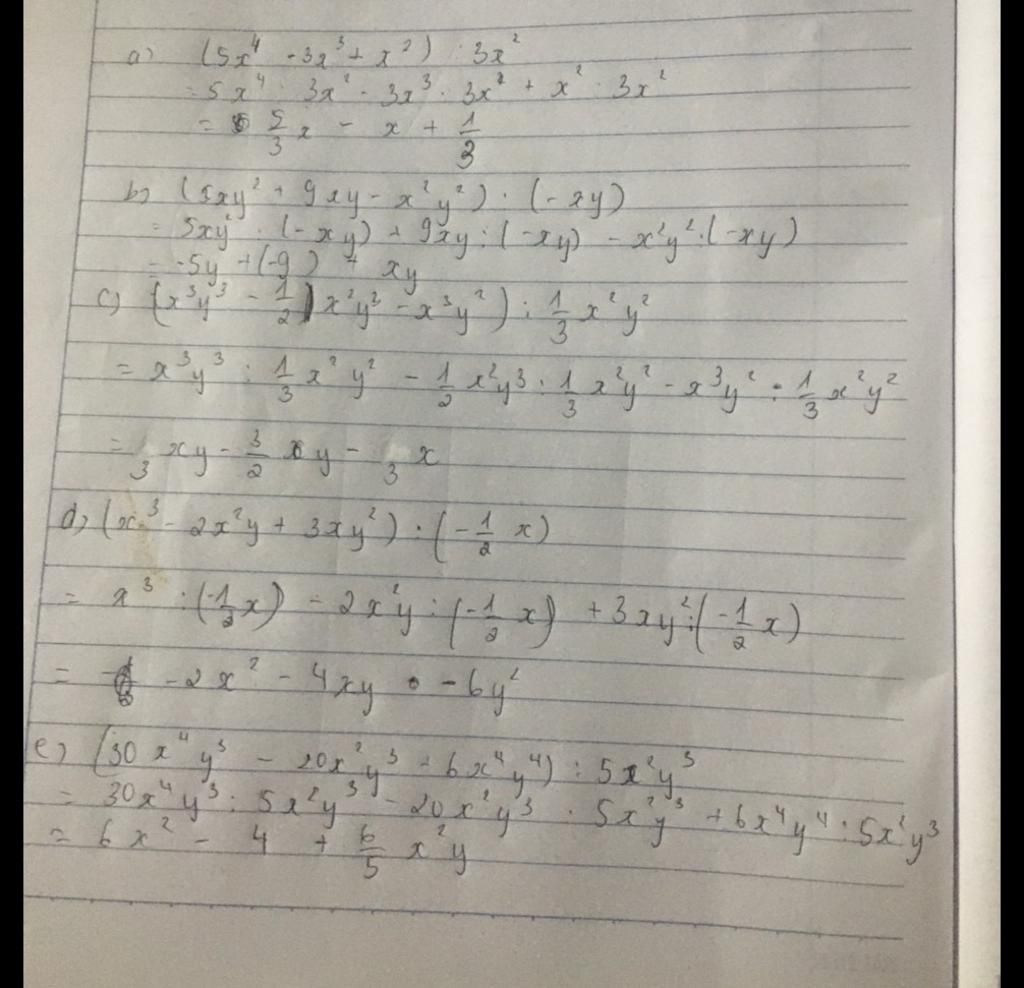 a) (5x⁴ - 3x³ + x²) : 3x²
= 5x⁴ : 3x² - 3x³ : 3x² + x² : 3x²
= 5/3 x - x + 1/3
b) (5xy² + 9xy - x²y²) : (-xy)
= 5xy² : (-xy) + 9xy : (-xy) - x²y² : (-xy)
= -5y + (-9) + xy
c) (x³y³ - 1/2 x²y³ - x³y²) : 1/3 x²y²
= x³y³ : 1/3 x²y² - 1/2 x²y³ : 1/3 x²y² - x³y² : 1/3 x²y²
= 3 xy - 3/2 y - 3 x
d) (x³ - 2x²y + 3xy²) : (-1/2 x)
= x³ : (-1/2 x) - 2x²y : (-1/2 x) + 3xy² : (-1/2 x)
= -2x² - 4xy - 6y²
e) (30x⁴y³ - 20x²y³ + 6x⁴y⁴) : 5x²y³
= 30x⁴y³ : 5x²y³ - 20x²y³ : 5x²y³ + 6x⁴y⁴ : 5x²y³
= 6x² - 4 + 6/5 x²y